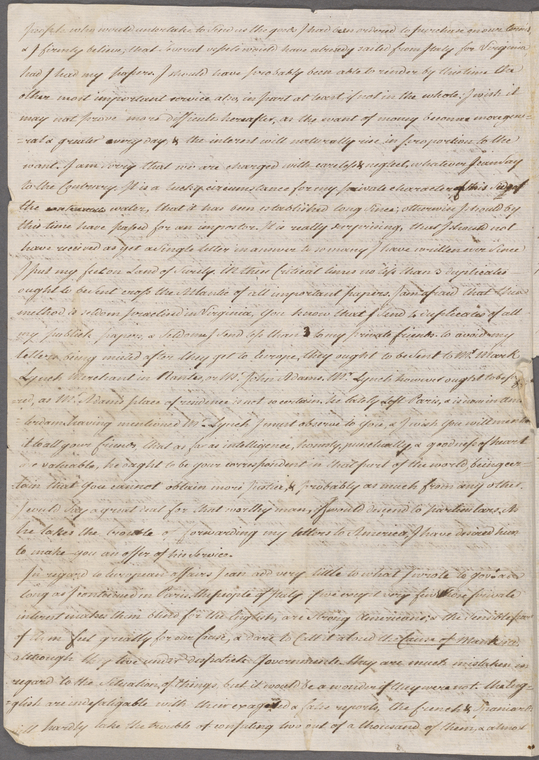 People who would undertake to send us the goods I had been ordered to purchase on our terms
& I firmly believe, that several vessels would have already sailed from Italy for Virginia
had I had my papers. I should have probably been able to render by this time the
other most important service also, in part at least if not in the whole. I wish it
may not prove more difficult hereafter, as the want of money becomes more gene-
ral & greater every day, & the interest will naturally rise in proportion to the
want. I am sorry that we are charged with careless & neglect, whatever I can say
to the Contrary. It is a lucky circumstance for my private character of this side of
the water, that it has been established long since, otherwise I should by
this time have passed for an impostor. It is really surprising, that I should not
have received as yet a single letter in answer to so many I have written ever since
I put my feet on Land of Europe. In these Critical times no less than 3 duplicates
ought to be sent cross the Atlantic of all important papers. I am afraid that
method is seldom practised in Virginia. You know that I send 4 duplicates of all
my publick papers, & seldom send less than 3 to my private friends. to avoid my
letters being missed after they get to Europe, they ought to be sent to Mr. Mark
Lynch Merchant in Nantes, or Mr. John Adams. Mr. Lynch however ought to be
as Mr. Adams place of residence is not so certain. he lately left Paris, & is now in Am-
sterdam. having mentioned Mr. Lynch I must observe to you, & I wish you will
it to all your friends, that as far as intelligence, honesty, punctuality, & goodness of heart
are valuable, he ought to be your correspondent in that part of the world, being cer-
tain that you cannot obtain more justice, & probably as much from any other.
I would say a great deal for that worthy man, if I would descend to particulars. As
he takes the trouble of forwarding my letters to America, I have desired him
to make you an offer of his service.
In regard to European affairs I can add very little to what I wrote to you as
long as I continued in Paris. the people of Italy, if we except very few whose private
interest makes them blind for the English, are strong Americans; & the sensible part
of them feel greatly for our Cause, & dare to call it aloud the Cause of Mankind,
although they live under despotick Governments. they are much mistaken in
regard to the situation of things, but it would be a wonder if they were not. the En-
glish are indefatigable with their exagerated & false reports, the french & Spaniards
will hardly take the trouble of confuting two out of a thousand of them, & almost